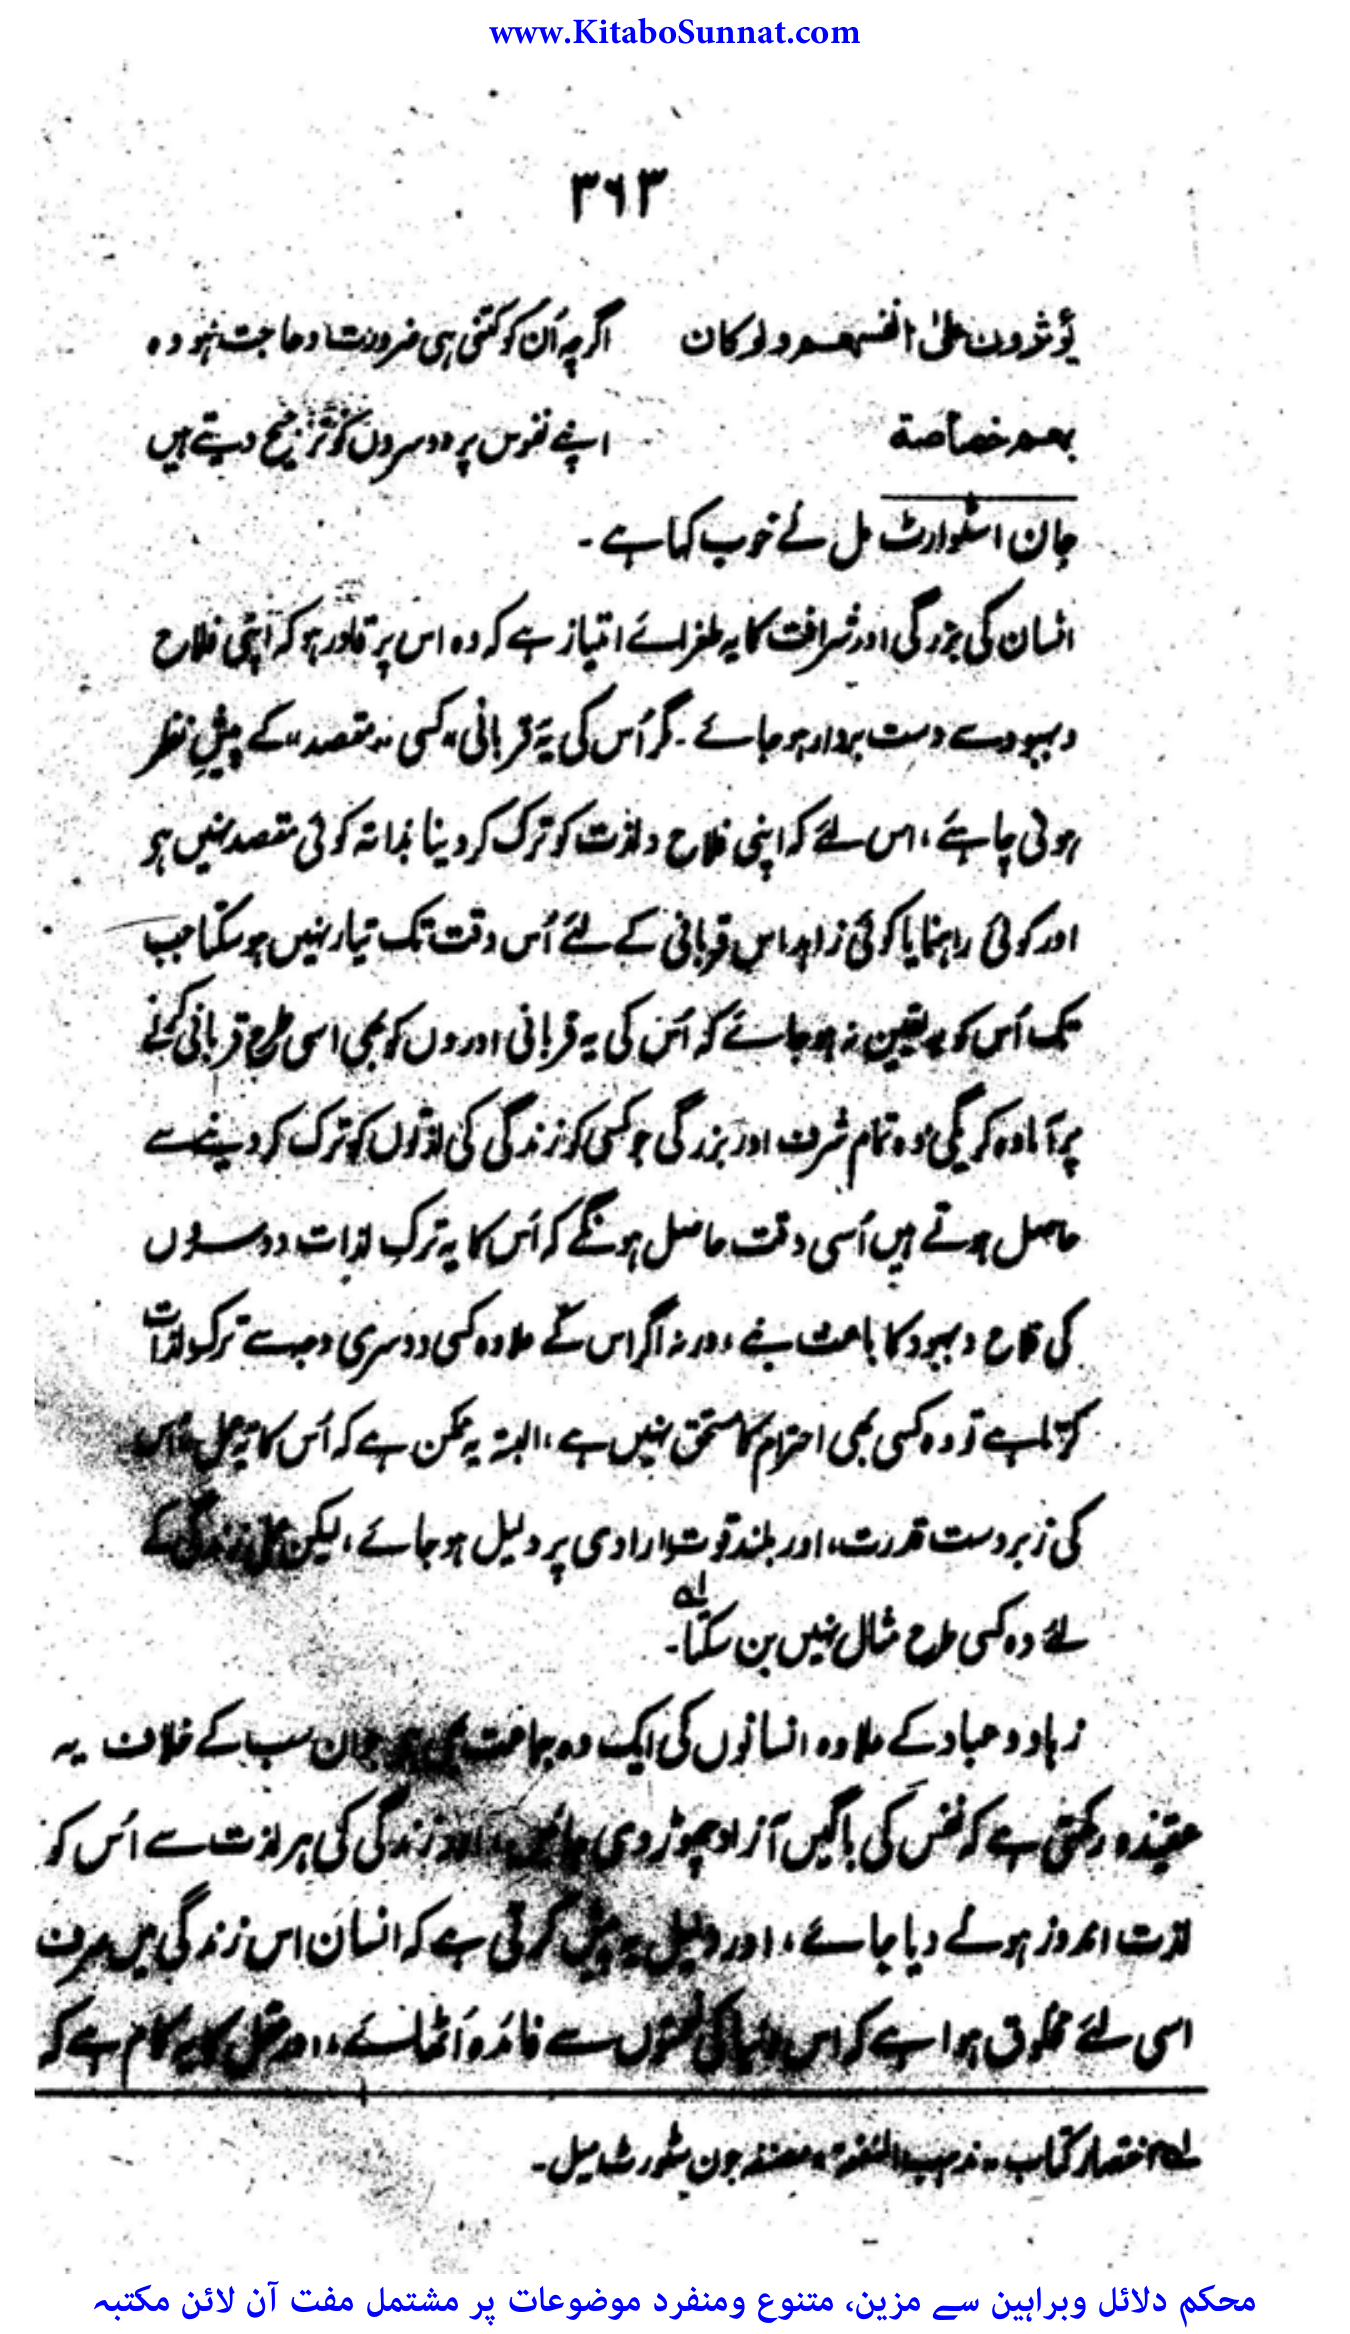 www.KitaboSunnat.com
۳۶۳
یؤثرون علیٰ انفسهم ولو کان اگرچہ اُن کو کتنی ہی ضرورت و حاجت ہو وہ
بهم خصاصة اپنے نفوس پر دوسروں کو ترجیح دیتے ہیں
جان اسٹوارٹ مل نے خوب کہا ہے ۔
انسان کی بزرگی اور شرافت کا یہ طغرائے امتیاز ہے کہ وہ اس پر قادر ہو کہ اپنی فلاح
و بہبود سے دست بردار ہو جائے ۔ مگر اُس کی یہ قربانی کسی "مقصد" کے پیشِ نظر
ہونی چاہئے، اس لئے کہ اپنی فلاح و لذت کو ترک کر دینا بذاتہ کوئی مقصد نہیں ہے
اور کوئی راہنما یا کوئی زاہد اس قربانی کے لئے اُس وقت تک تیار نہیں ہو سکتا جب
تک اُس کو یہ یقین نہ ہو جائے کہ اُس کی یہ قربانی اوروں کو بھی اسی طرح قربانی کرنے
پر آمادہ کریگی وہ تمام شرف اور بزرگی جو کسی کو زندگی کی لذتوں کو ترک کر دینے سے
حاصل ہوتے ہیں اُسی وقت حاصل ہونگے کہ اُس کا یہ ترکِ لذات دوسروں
کی فلاح و بہبود کا باعث بنے، ورنہ اگر اس کے علاوہ کسی دوسری وجہ سے ترک لذات
کرتا ہے تو وہ کسی بھی احترام کا مستحق نہیں ہے، البتہ یہ ممکن ہے کہ اُس کا یہ عمل اُس
کی زبردست قدرت، اور بلند قوت ارادی پر دلیل ہو جائے، لیکن عملی زندگی کے
لئے وہ کسی طرح مثال نہیں بن سکتا۔ لہ
زہاد و عباد کے علاوہ انسانوں کی ایک وہ جماعت بھی ہے جو ان سب کے خلاف یہ
عقیدہ رکھتی ہے کہ نفس کی باگیں آزاد چھوڑ دی جائیں، اور زندگی کی ہر لذت سے اُس کو
لذت اندوز ہونے دیا جائے، اور دلیل یہ پیش کرتی ہے کہ انسان اس زندگی میں صرف
اسی لئے مخلوق ہوا ہے کہ اس دنیا کی نعمتوں سے فائدہ اُٹھائے، اور عقل کا یہ کام ہے کہ
لہ اختصار کتاب "مذہب المنفعۃ" مصنفہ جون سٹورٹ میل۔
محکم دلائل وبراہین سے مزین، متنوع ومنفرد موضوعات پر مشتمل مفت آن لائن مکتبہ